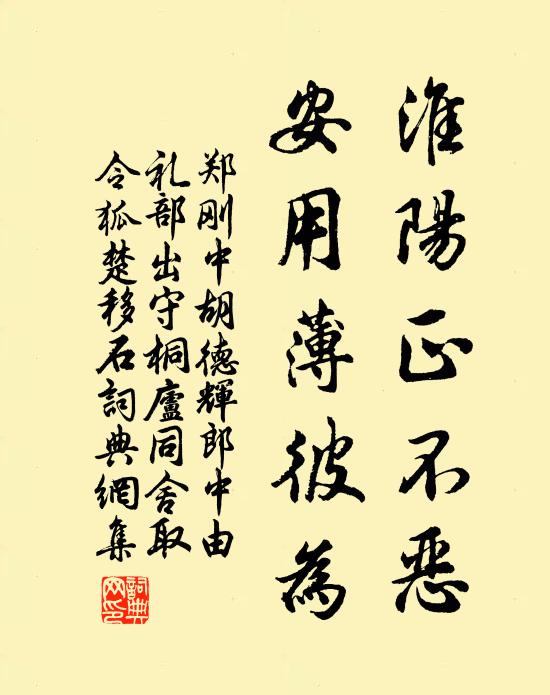 淮陽正不恶
安用薄彼為
郑刚中胡德輝郎中由
礼部出守桐廬同舍取
令狐楚移石詞典網集
詞典网印